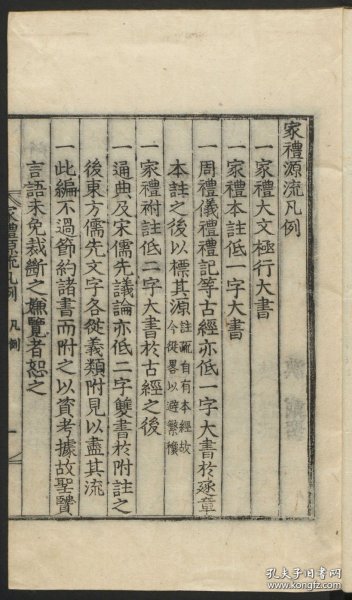 家禮源流凡例
一家禮大文極行大書
一家禮本註低一字大書
一周禮儀禮禮記等古經亦低一字大書於逐章
本註之後以標其源註疏自有本經故今從畧以避繁穰
一家禮附註低二字大書於古經之後
一通典及宋儒先議論亦低二字雙書於附註之
後東方儒先文字各從義類附見以盡其流
一此編不過節約諸書而附之以資考據故聖賢
言語未免裁斷之嫌覽者恕之
家禮源流凡例
凡例
一
孔夫子旧书网